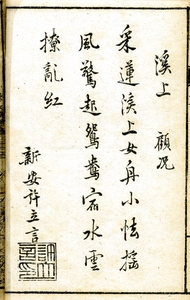 溪上　顧況
采蓮溪上女舟小怯搖
風驚起鴛鴦宿水雲
撩亂紅
新安許立言